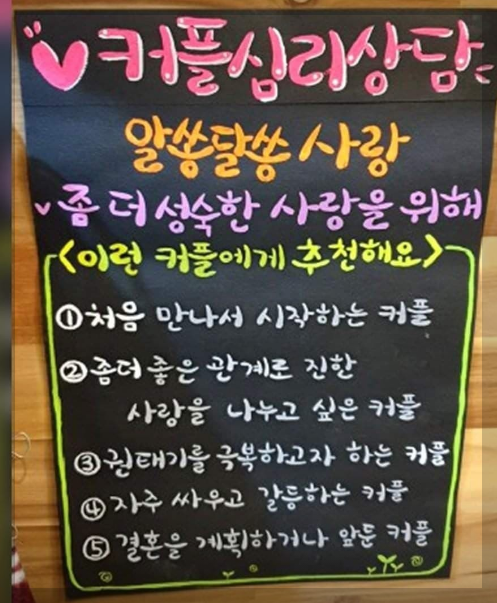 커플심리상담
알쏭달쏭 사랑
좀 더 성숙한 사랑을 위해
<이런 커플에게 추천해요>
①처음 만나서 시작하는 커플
②좀더 좋은 관계로 진한
사랑을 나누고 싶은 커플
③권태기를 극복하고자 하는 커플
④자주 싸우고 갈등하는 커플
⑤결혼을 계획하거나 앞둔 커플